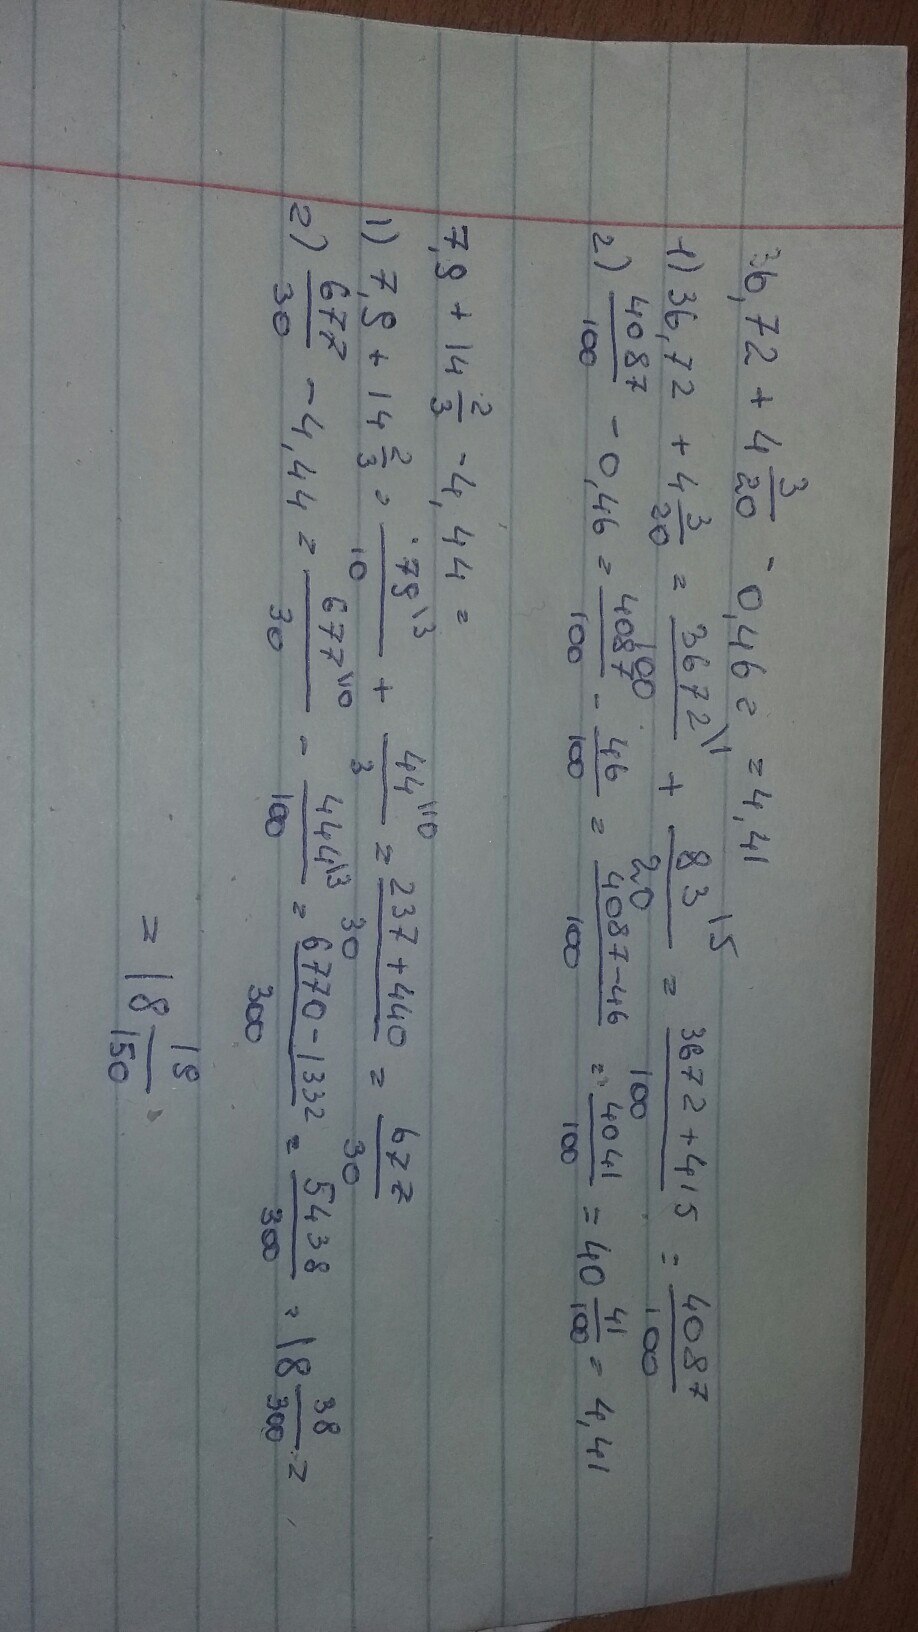 36,72 + 4 3/20 - 0,46 = = 4,41
1) 36,72 + 4 3/20 = 3672\1/100 + 83\5/20 = 3672+415/100 = 4087/100
2) 4087/100 - 0,46 = 4087/100 - 46/100 = 4087-46/100 = 4041/100 = 40 41/100 = 4,41
7,9 + 14 2/3 - 4,44 =
1) 7,9 + 14 2/3 = 79\3/10 + 44\10/3 = 237+440/30 = 677/30
2) 677/30 - 4,44 = 677\10/30 - 444\3/100 = 6770-1332/300 = 5438/300 = 18 38/300 =
= 18 19/150